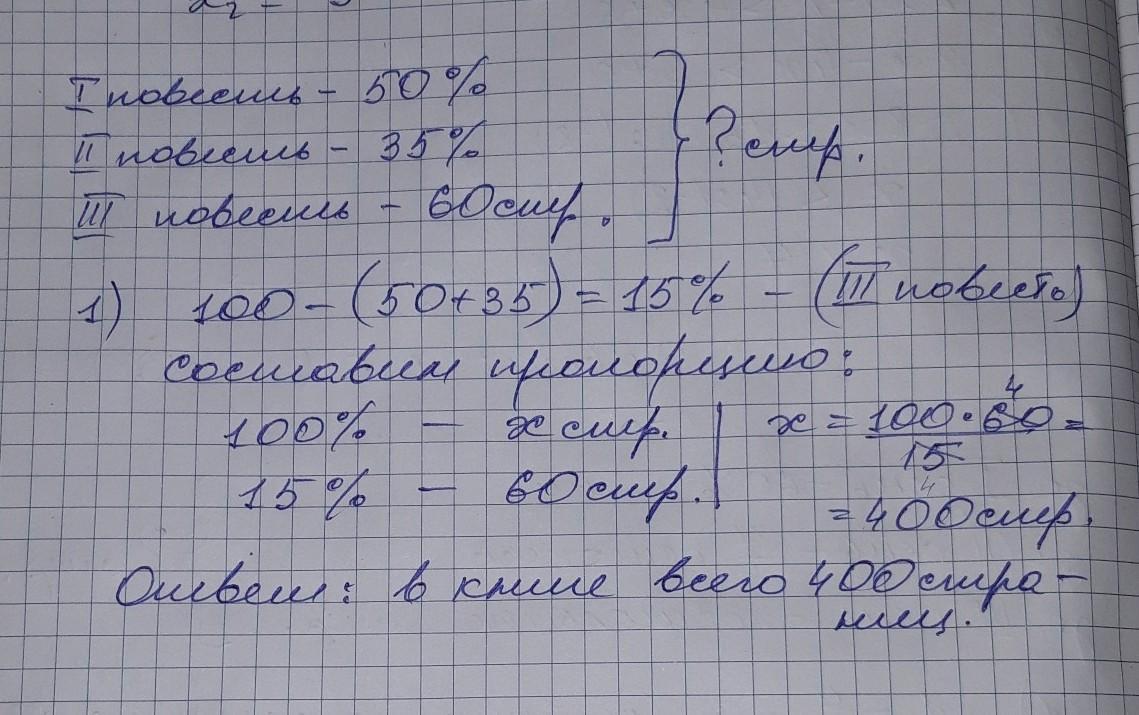 x₂ =
I повесть - 50%
II повесть - 35%
III повесть - 60 стр.
? стр.
1) 100 - (50+35) = 15% - (III повесть)
Составим пропорцию:
100% - x стр.
15% - 60 стр.
x = 100·60/15 =
4
4
= 400 стр.
Ответ: в книге всего 400 стра-
ниц.